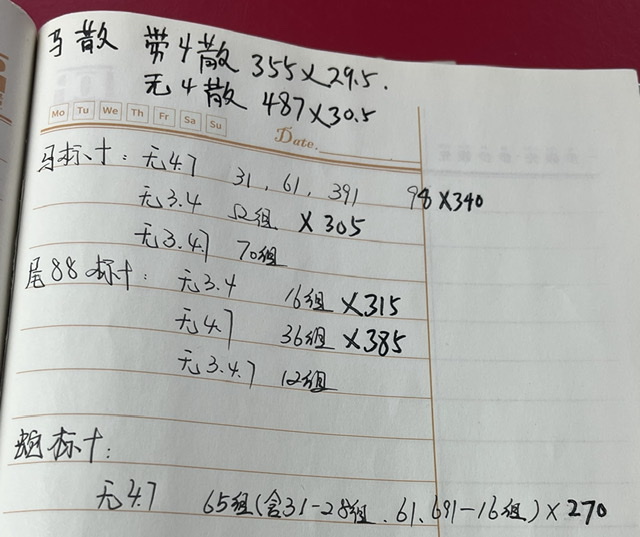 马散 带4散 355×29.5.
无4散 487×30.5
Mo Tu We Th Fr Sa Su
Date.
马标十：无4.7 31、61、391 98×340
无3.4 52组 ×305
无3.4.7 70组
尾88标十：无3.4 16组×315
无4.7 36组×385
无3.4.7 12组
标十：
无4.7 65组(含31-28组、61、691-16组)×270